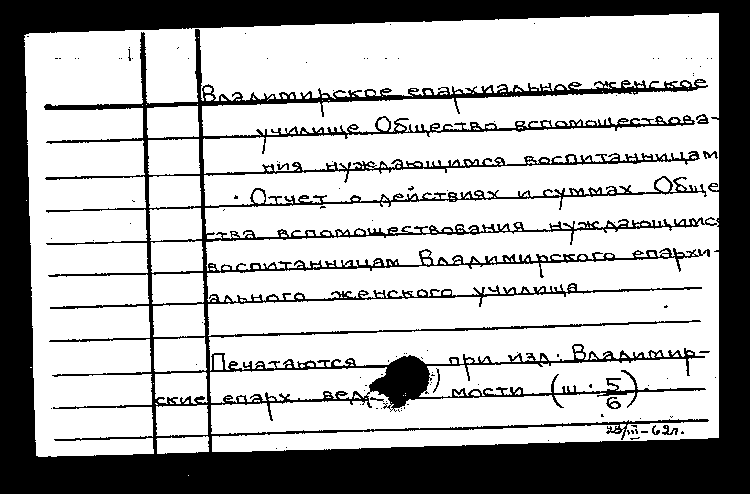 Владимирское епархиальное женское
училище Общество вспомоществова-
ния нуждающимся воспитанницам
Отчет о действиях и суммах Обще
ства вспомоществования нуждающимс
воспитанницам Владимирского епархи-
ального женского училища
Печатаются при изд. Владимир-
ские епарх. вед мости (ш. 5/6).
23/III-62г.